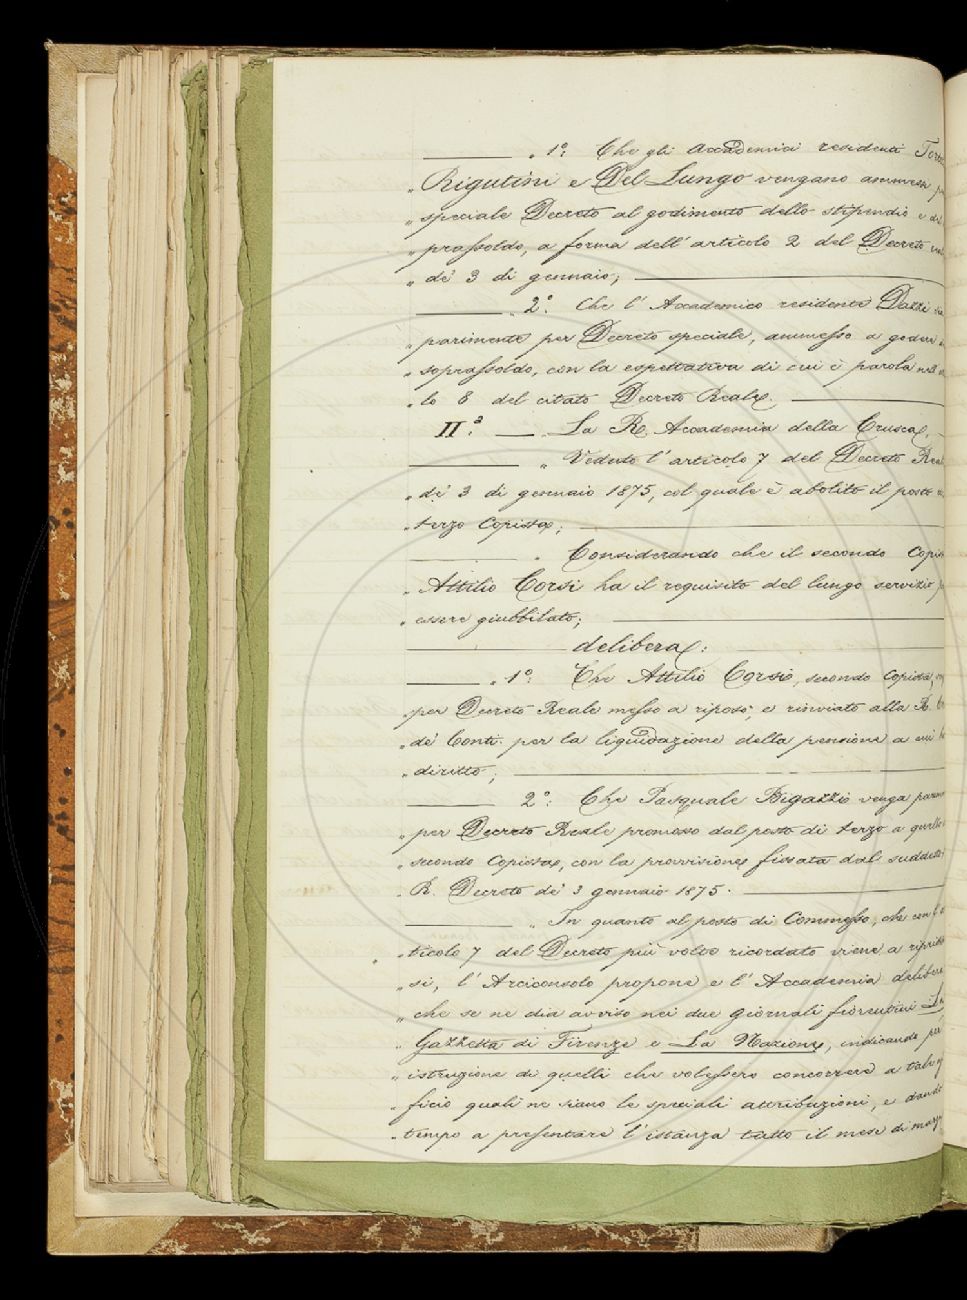 „ 1.° Che gli Accademici residenti
„ Rigutini e Del-Lungo vengano ammessi
„ speciale Decreto al godimento dello stipendio e
„ prassoldo, a forma dell'articolo 2 del Decreto
„ dè 3 di gennaio;
„ 2.° Che l'Accademico residente Dazzi
„ parimente per Decreto speciale, ammesso a godere
„ soprassoldo, con la espettativa di cui è parola
„ lo 8 del citato Decreto Reale.
II.ª — „ La R. Accademia della Crusca,
„ Veduto l'articolo 7 del Decreto
„ dè 3 di gennaio 1875, col quale è abolito il posto
„ terzo Copista;
„ Considerando che il secondo
„ Attilio Corsi ha il requisito del lungo servizio
„ essere giubbilato;
delibera:
„ 1.° Che Attilio Corsi, secondo Copista,
„ per Decreto Reale messo a riposo, e rinviato alla R.
„ dè Conti per la liquidazione della pensione a cui
„ diritto;
2.° Che Pasquale Bigazzi venga
„ per Decreto Reale promosso dal posto di terzo a quello
„ secondo Copista, con la provvisione fissata dal suddetto
„ R. Decreto dè 3 gennaio 1875.
„ In quanto al posto di Commesso, che
„ ticolo 7 del Decreto più volte ricordato viene a
„ si, l'Arciconsolo propone e l'Accademia
„ che se ne dia avviso nei due giornali fiorentini La
„ Gazzetta di Firenze e La Nazione, indicando per
„ istruzione di quelli che volessero concorrere a
„ ficio quali ne siano le speciali attribuzioni, e
„ tempo a presentare l'istanza tutto il mese di